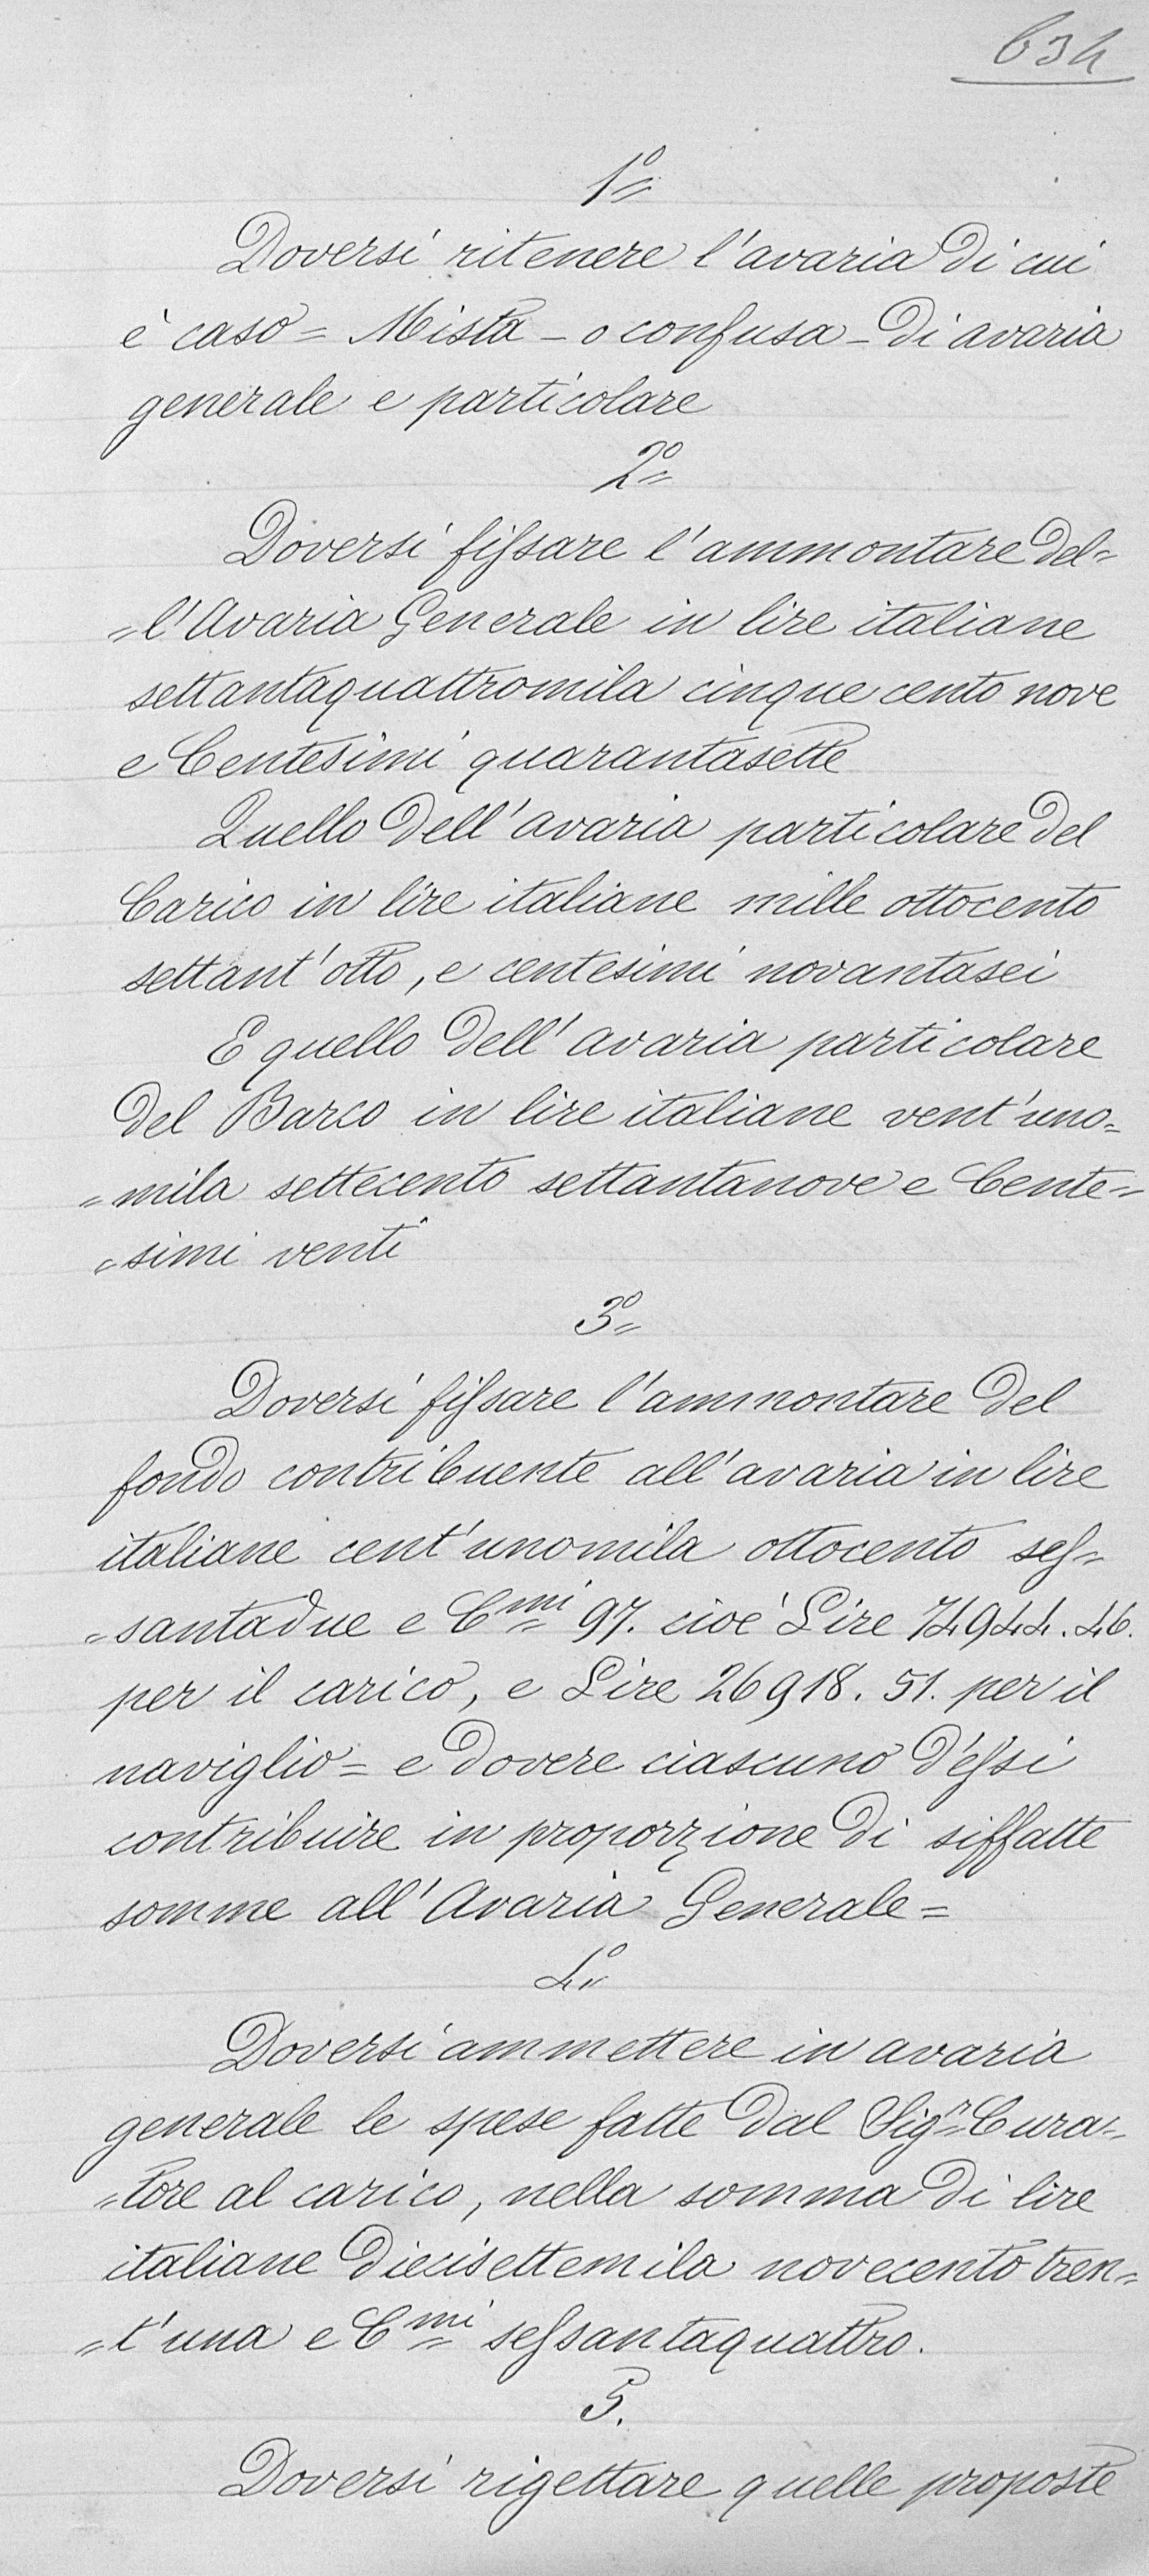 634
1º=
Doversi ritenere l'avaria di cui
è caso = Mista - o confusa - di avaria
generale e particolare
2º=
Doversi fissare l'ammontare del=
=l'Avaria Generale in lire italiane
settantaquattromila cinque cento nove
e Centesimi quarantasette
Quello dell'avaria particolare del
Carico in lire italiane mille ottocento
settant'otto, e centesimi novantasei
E quello dell'avaria particolare
del Barco in lire italiane vent'uno=
=mila settecento settantanove e Cente=
=simi venti
3º=
Doversi fissare l'ammontare del
fondo contribuente all'avaria in lire
italiane cent'unomila ottocento ses=
=santadue e Cmi= 97. cioè Lire 74944.46.
per il carico, e Lire 26918.51. per il
naviglio = e dovere ciascuno d'essi
contribuire in proporzione di siffatte
somme all'Avaria Generale =
4º=
Doversi ammettere in avaria
generale le spese fatte dal Sigr= Cura=
=tore al carico, nella somma di lire
italiane diecisettemila novecento tren=
=t'una e Cmi= sessantaquattro.
5.
Doversi rigettare quelle proposte